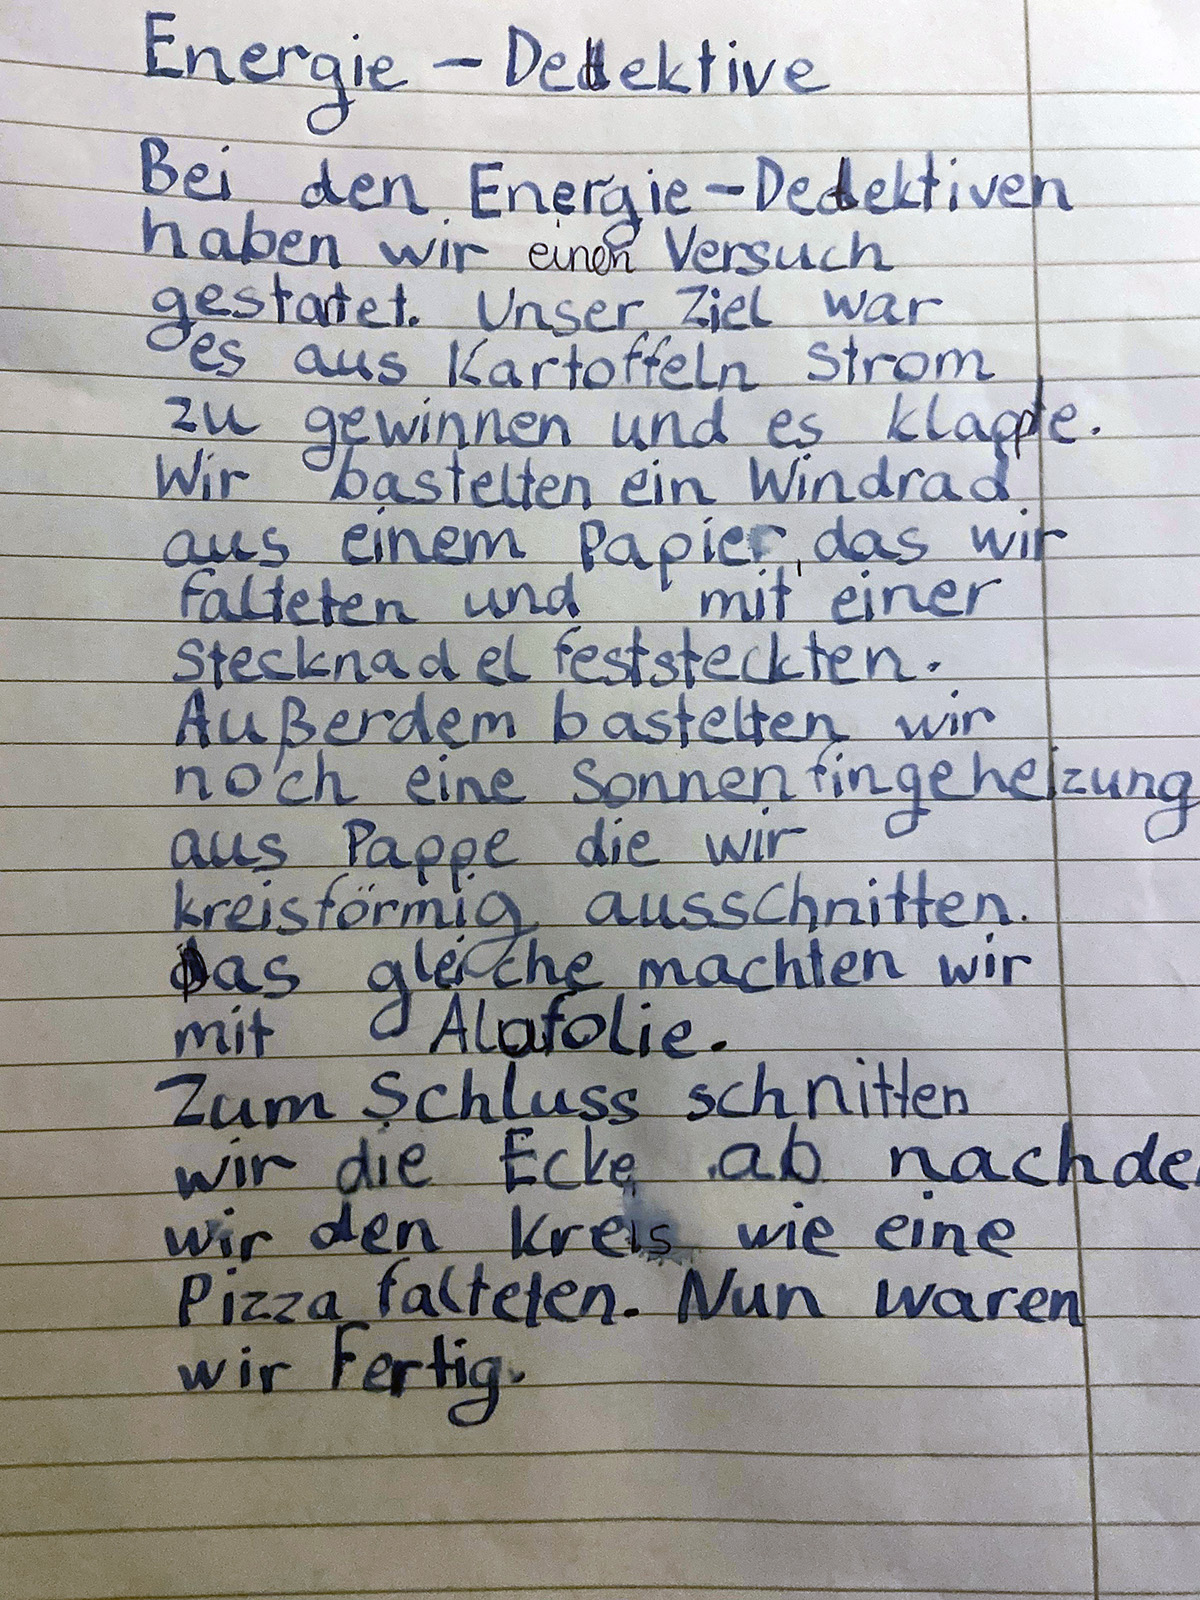 Energie - Detektive
Bei den Energie-Detektiven
haben wir einen Versuch
gestartet. Unser Ziel war
es aus Kartoffeln Strom
zu gewinnen und es klappte.
Wir bastelten ein Windrad
aus einem Papier, das wir
falteten und mit einer
Stecknadel feststeckten.
Außerdem bastelten wir
noch eine Sonnenfingeheizung
aus Pappe die wir
kreisförmig ausschnitten.
Das gleiche machten wir
mit Alufolie.
Zum Schluss schnitten
wir die Ecke ab nachde
wir den Kreis wie eine
Pizza falteten. Nun waren
wir Fertig.